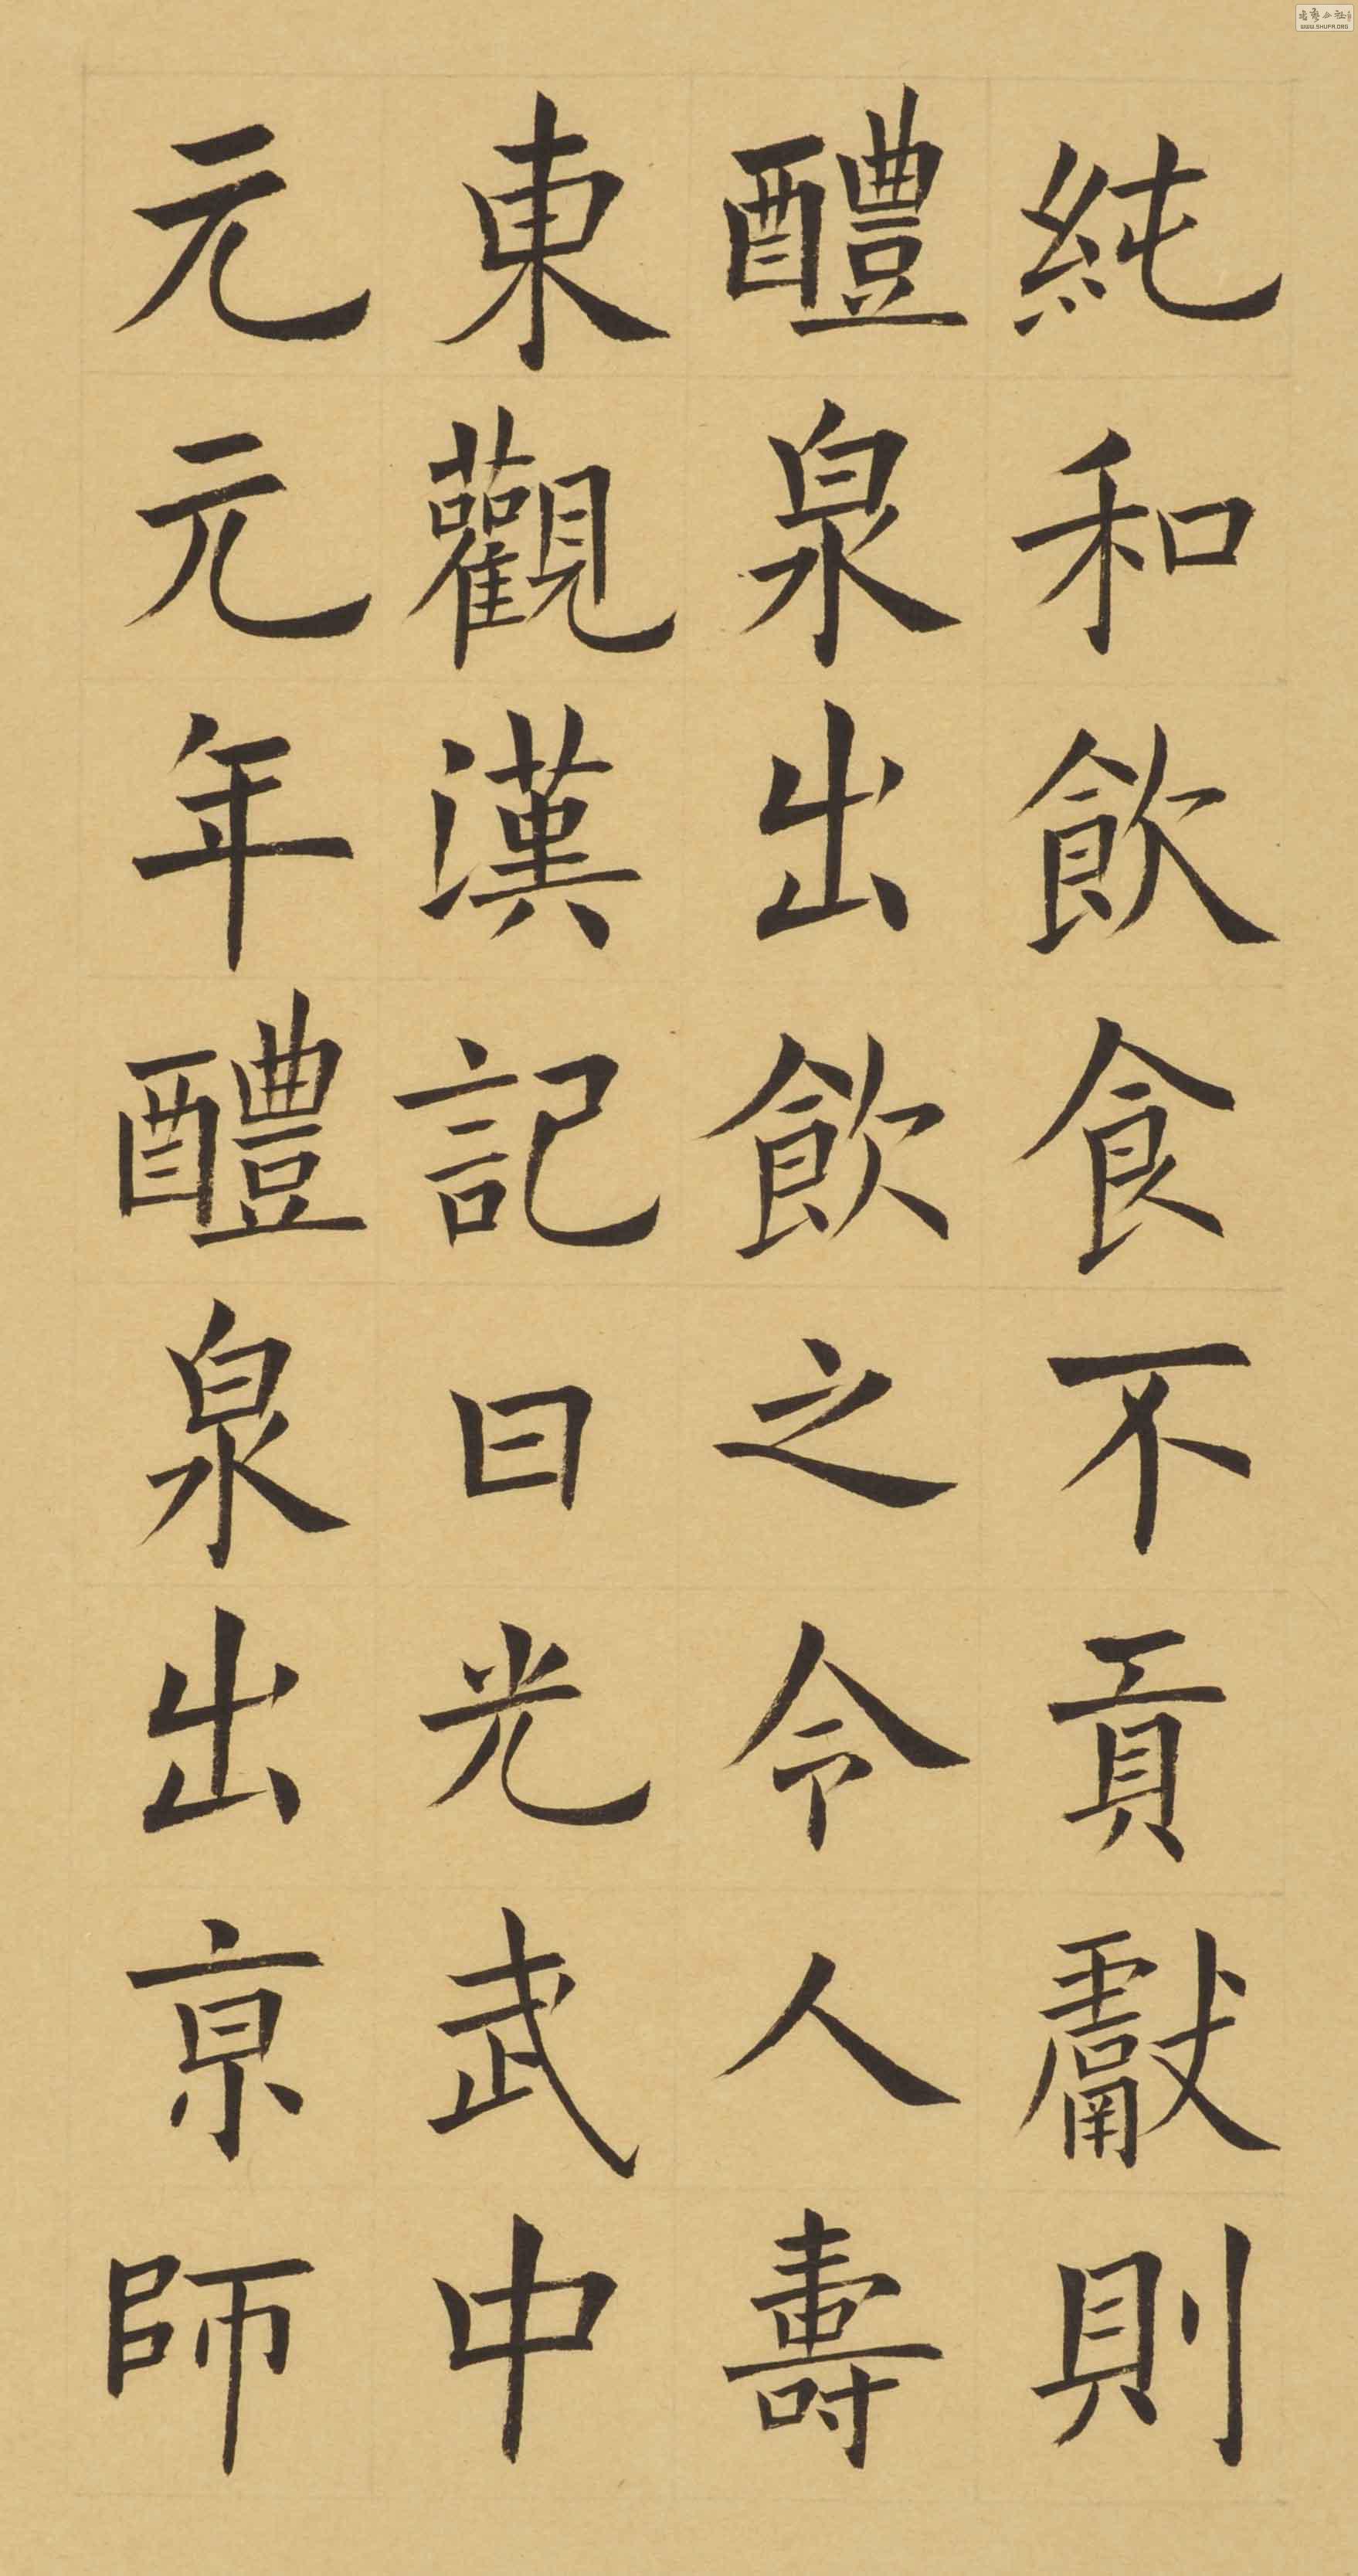 純和飲食不貢獻則
醴泉出飲之令人壽
東觀漢記曰光武中
元元年醴泉出京師
WWW.SHUFA.ORG